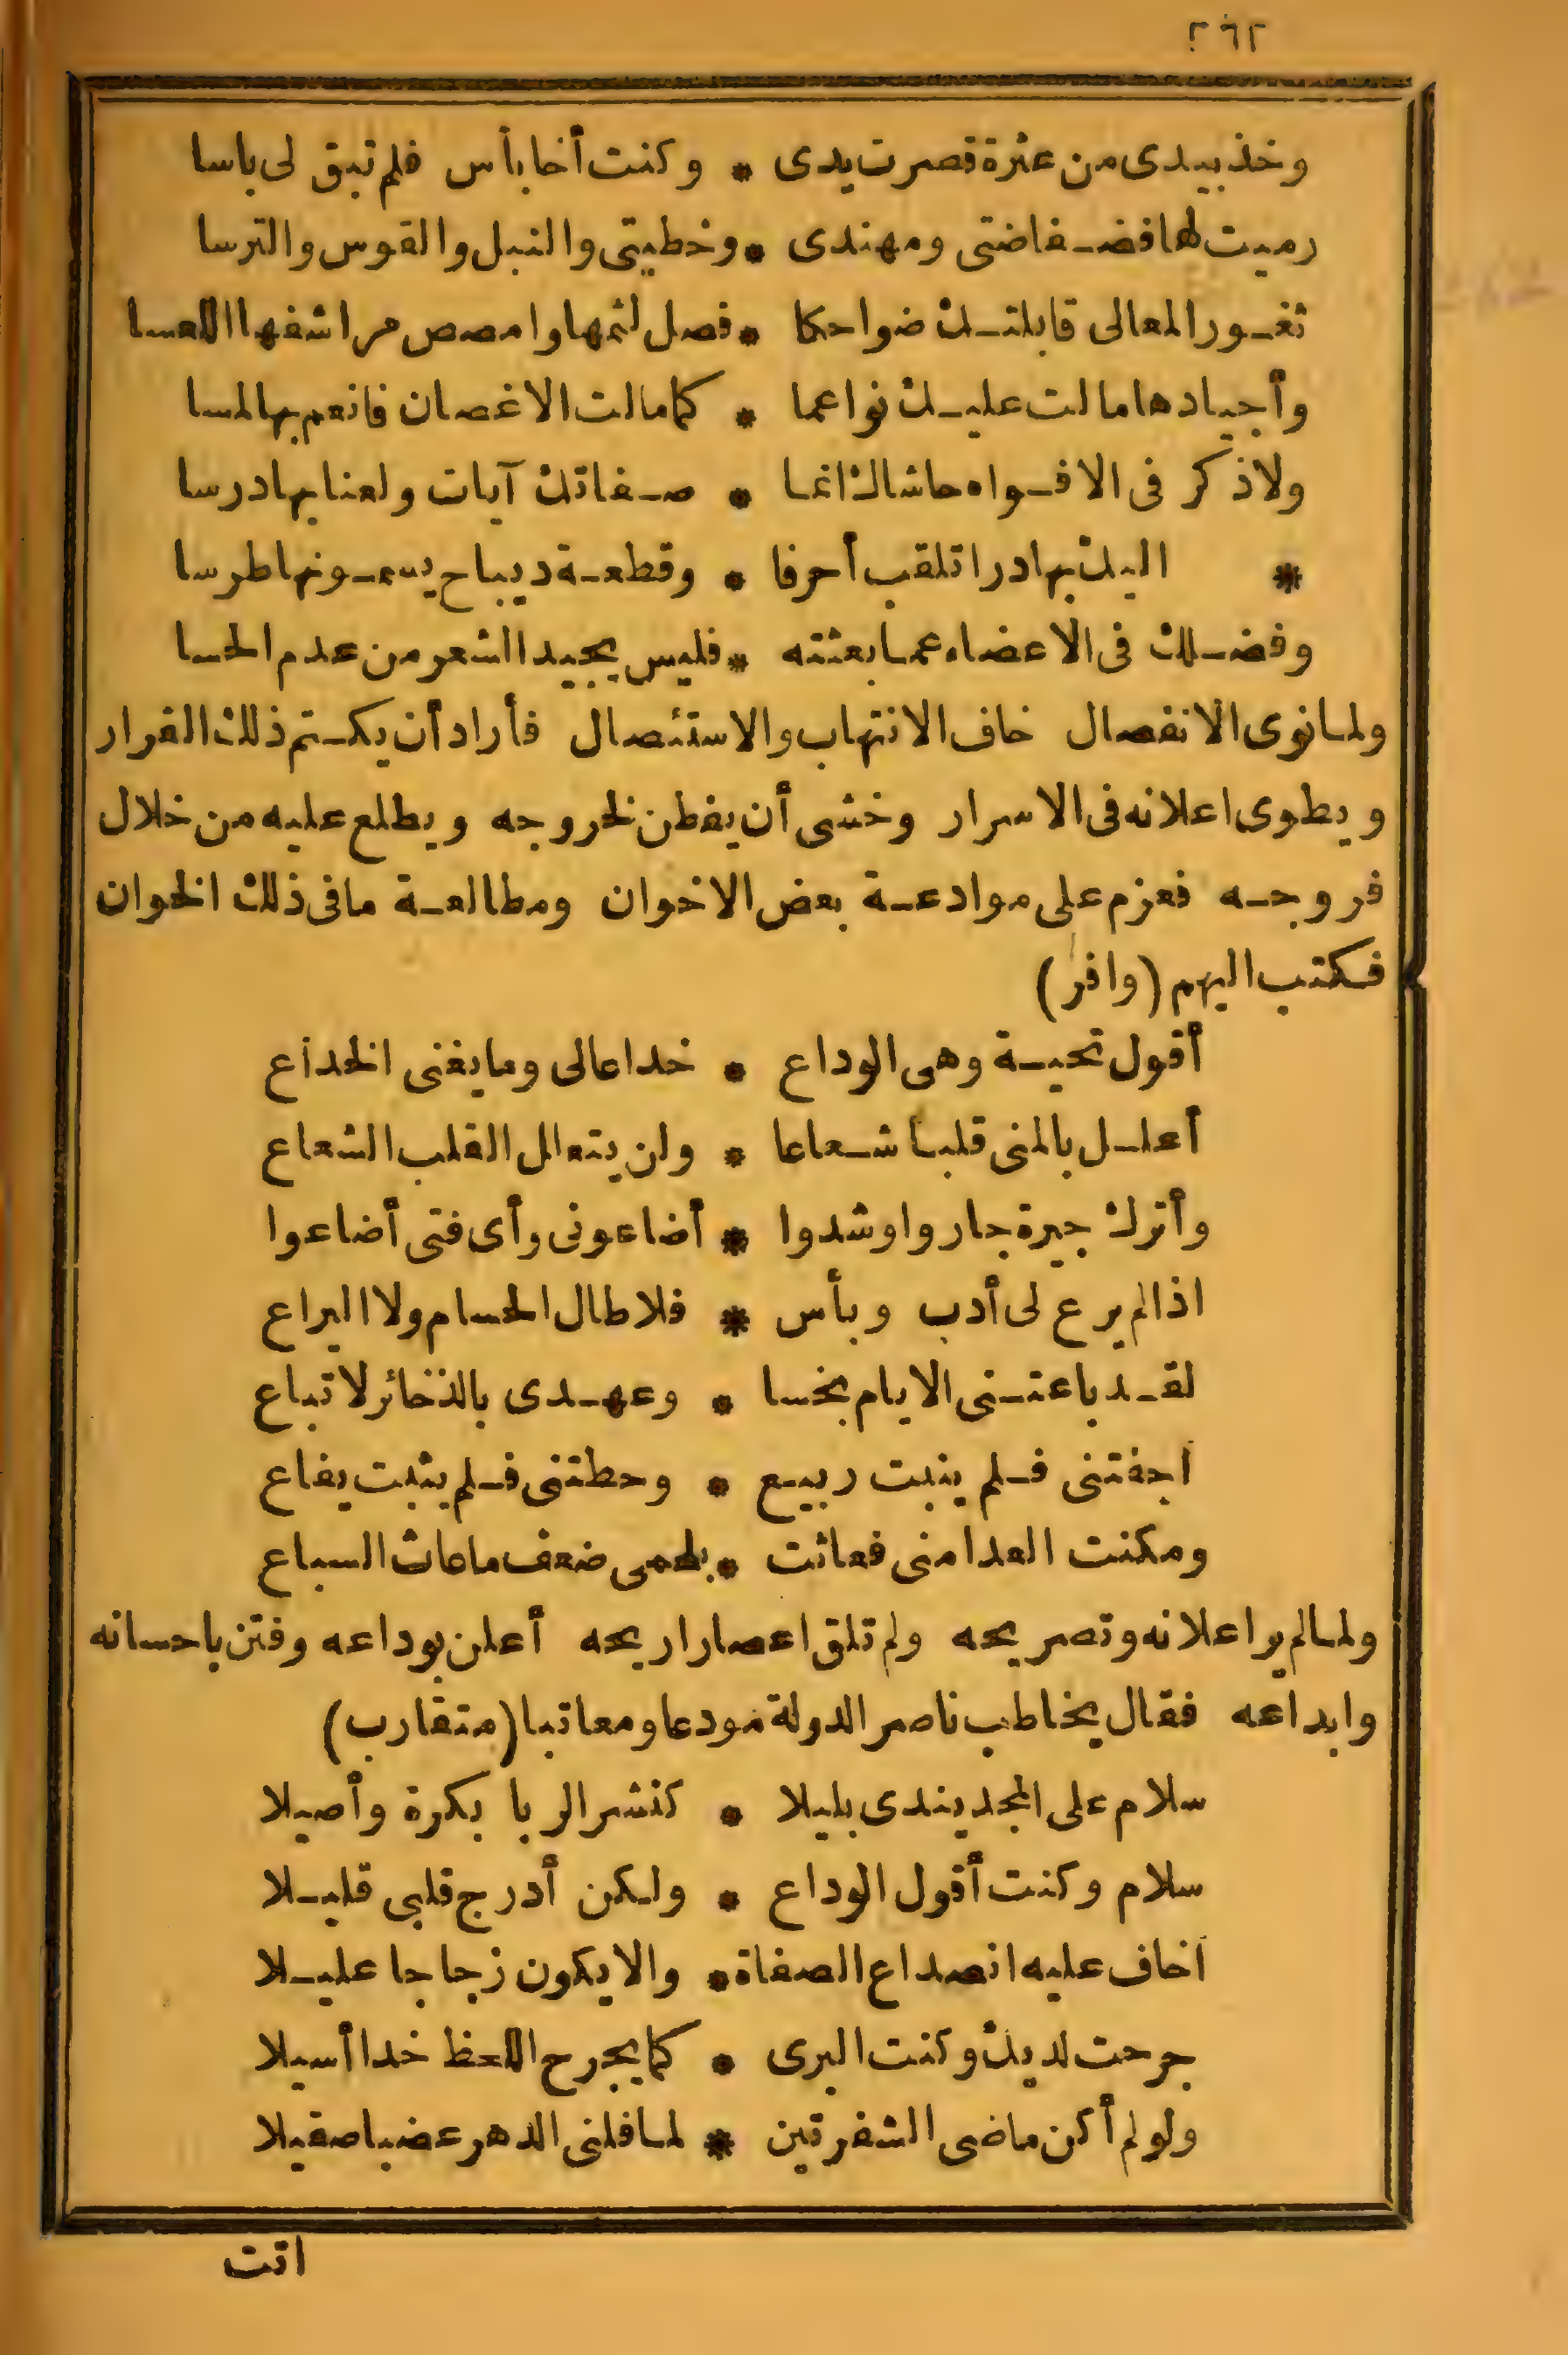 ٢٦٢
وخذ بيدى من عثرة قصرت يدى * وكنت أخا بأس فلم تبق لى باسا
رميت لها فضفاضتى ومهندى * وخطيتى والنبل والقوس والترسا
ثغور المعالى قابلتك ضواحكا * فصل لثمها وامصص مراشفها اللعسا
وأجيادها مالت عليك نواعما * كما مالت الاغصان فانعم بها لمسا
ولا ذكر فى الافواه حاشاك انما * صفاتك آيات ولعنا بها درسا
* اليك بها درا تلقب أحرفا * وقطعة ديباح يسمونها طرسا
وفضلك فى الاعضاء عما بعثته * فليس يجيد الشعر من عدم الحسا
ولما نوى الانفصال خاف الانتهاب والاستئصال فأراد أن يكتم ذلك القرار
ويطوى اعلانه فى الاسرار وخشى أن يفطن لخروجه ويطلع عليه من خلال
فروجه فعزم على موادعة بعض الاخوان ومطالعة ما فى ذلك الخوان
فكتب اليهم (وافر)
أقول تحية وهى الوداع * خداعا لى وما يغنى الخداع
أعلل بالمنى قلبا شعاعا * ولن يتعالل القلب الشعاع
وأترك جيرة جاروا وشدوا * أضاعونى وأى فتى أضاعوا
اذا لم يرع لى أدب وبأس * فلا طال الحسام ولا اليراع
لقد باعتنى الايام بخسا * وعهدى بالذخائر لا تباع
اجفتنى فلم ينبت ربيع * وحطتنى فلم يثبت يفاع
ومكنت العدا منى فعاثت * بلحمى ضعف ما عاث السباع
ولما لم ير اعلانه وتصريحه ولم تلق اعصارا ريحه أعلن بوداعه وفتن باحسانه
وابداعه فقال يخاطب ناصر الدولة مودعا ومعاتبا (متقارب)
سلام على المجد يندى بليلا * كنشر الربا بكرة وأصيلا
سلام وكنت أقول الوداع * ولكن أدرج قلبى قليلا
اخاف عليه انصداع الصفاة * والا يكون زجاجا عليلا
جرحت لديك وكنت البرى * كما يجرح اللحظ خدا أسيلا
ولو لم أكن ماضى الشفرتين * لما فلنى الدهر عضبا صقيلا
اتت